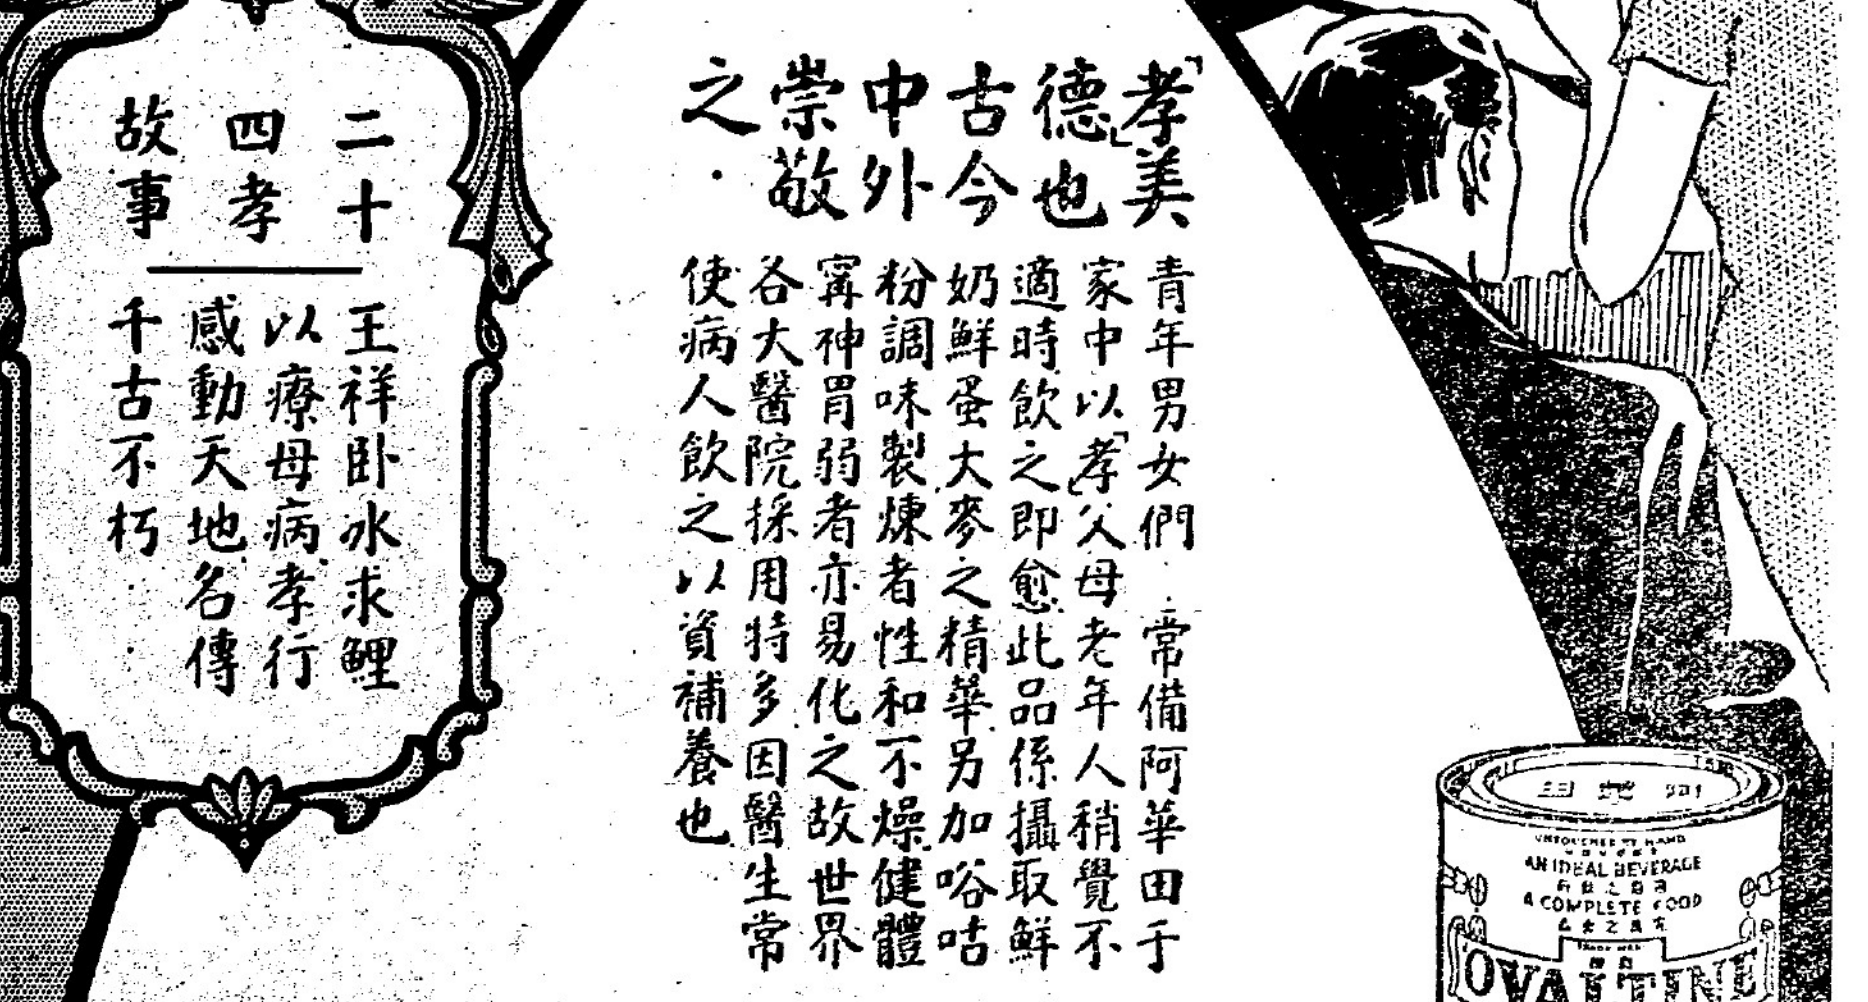 「孝」美
德也
古今
中外
崇敬
之．
青年男女們．常備阿華田于
家中以「孝」父母老年人稍覺不
適時飲之即愈．此品係攝取鮮
奶鮮蛋大麥之精華．另加唂咕
粉調味製煉者性和不燥．健體
寗神胃弱者亦易化之故世界
各大醫院採用特多．因醫生常
使病人飲之以資補養也．
二十
四孝
故事
王祥卧冰求鯉
以療母病．孝行
感動天地．名傳
千古不朽．
UNTOUCHED BY HAND
AN IDEAL BEVERAGE
A COMPLETE FOOD
TRADE MARK
OVALTINE